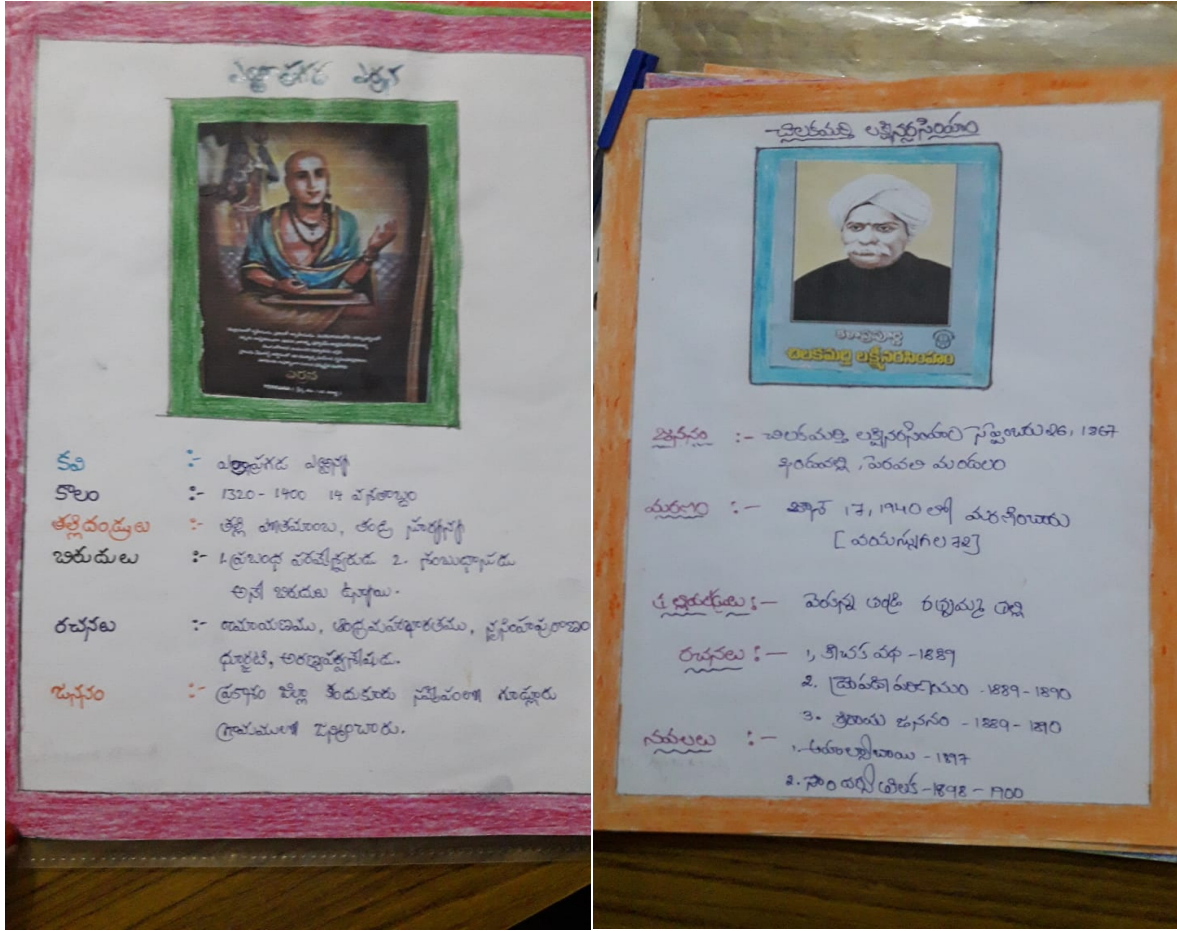 ఎర్రాప్రగడ ఎర్రన
ఎర్రన
కవి :- ఎర్రాప్రగడ ఎర్రన్న
కాలం :- 1320 - 1400 14 వ శతాబ్దం
తల్లిదండ్రులు :- తల్లి పోతమాంబ, తండ్రి సూర్యన్న
బిరుదులు :- 1. ప్రబంధ పరమేశ్వరుడ 2. శంబుధాసుడు
అనే బిరుదులు ఉన్నాయి.
రచనలు :- రామాయణము, ఆంధ్రమహాభారతము, నృసింహపురాణం
ధూర్జటి, అరణ్యపర్వశేషుడు.
జననం :- ప్రకాశం జిల్లా కందుకూరు సమీపంలో గూడ్లూరు
గ్రామములో జన్మించారు.
చిలకమర్తి లక్ష్మీనరసింహం
కళాప్రపూర్ణ
చిలకమర్తి లక్ష్మీనరసింహం
జననం :- చిలకమర్తి లక్ష్మినరసింహం సెప్టెంబరు 26, 1867
ఖండవల్లి, పెరవలి మండలం
మరణం :- జూన్ 17, 1940 లో మరణించారు
[వయస్సుగల 72]
తల్లిదండ్రులు :- వెంకన్న తండ్రి రత్నమ్మ తల్లి
రచనలు :- 1, కీచక వధ - 1889
2. ద్రౌపదీ పరిణయం - 1889 - 1890
3. శ్రీరామ జననం - 1889 - 1890
నవలలు :- 1. అహల్యాబాయి - 1897
2. సౌందర్య తిలక - 1898 - 1900